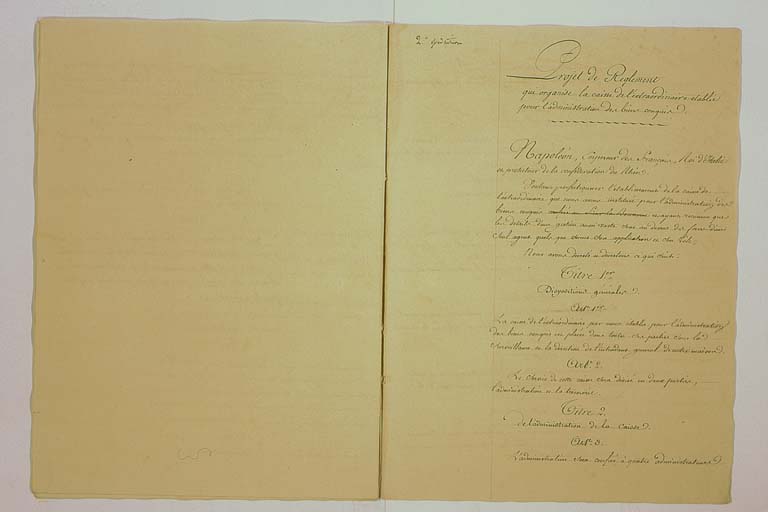 2e Expédition
Projet de Règlement
qui organise la caisse de l'extraordinaire établie
pour l'administration des biens conquis.
Napoléon, Empereur des Français, Roi d'Italie
et protecteur de la confédération du Rhin.
Voulant perfectionner l'établissement de la caisse de
l'extraordinaire que nous avons instituée pour l'administration des
biens conquis et ayant reconnu que
les détails d'une gestion aussi vaste sont au dessus des
seul agent quels que soient son application et son zèle,
Nous avons décrété et décrétons ce qui suit:
Titre 1er
Dispositions générales.
Art. 1er
La caisse de l'extraordinaire par nous établie pour l'administration
des biens conquis est placée dans toutes ses parties sous la
surveillance et la direction de l'intendant général de notre maison.
Art. 2.
Le service de cette caisse sera divisé en deux parties,
l'administration et la trésorerie.
Titre 2.
de l'administration de la Caisse.
Art. 3.
L'administration sera confiée à quatre administrateurs